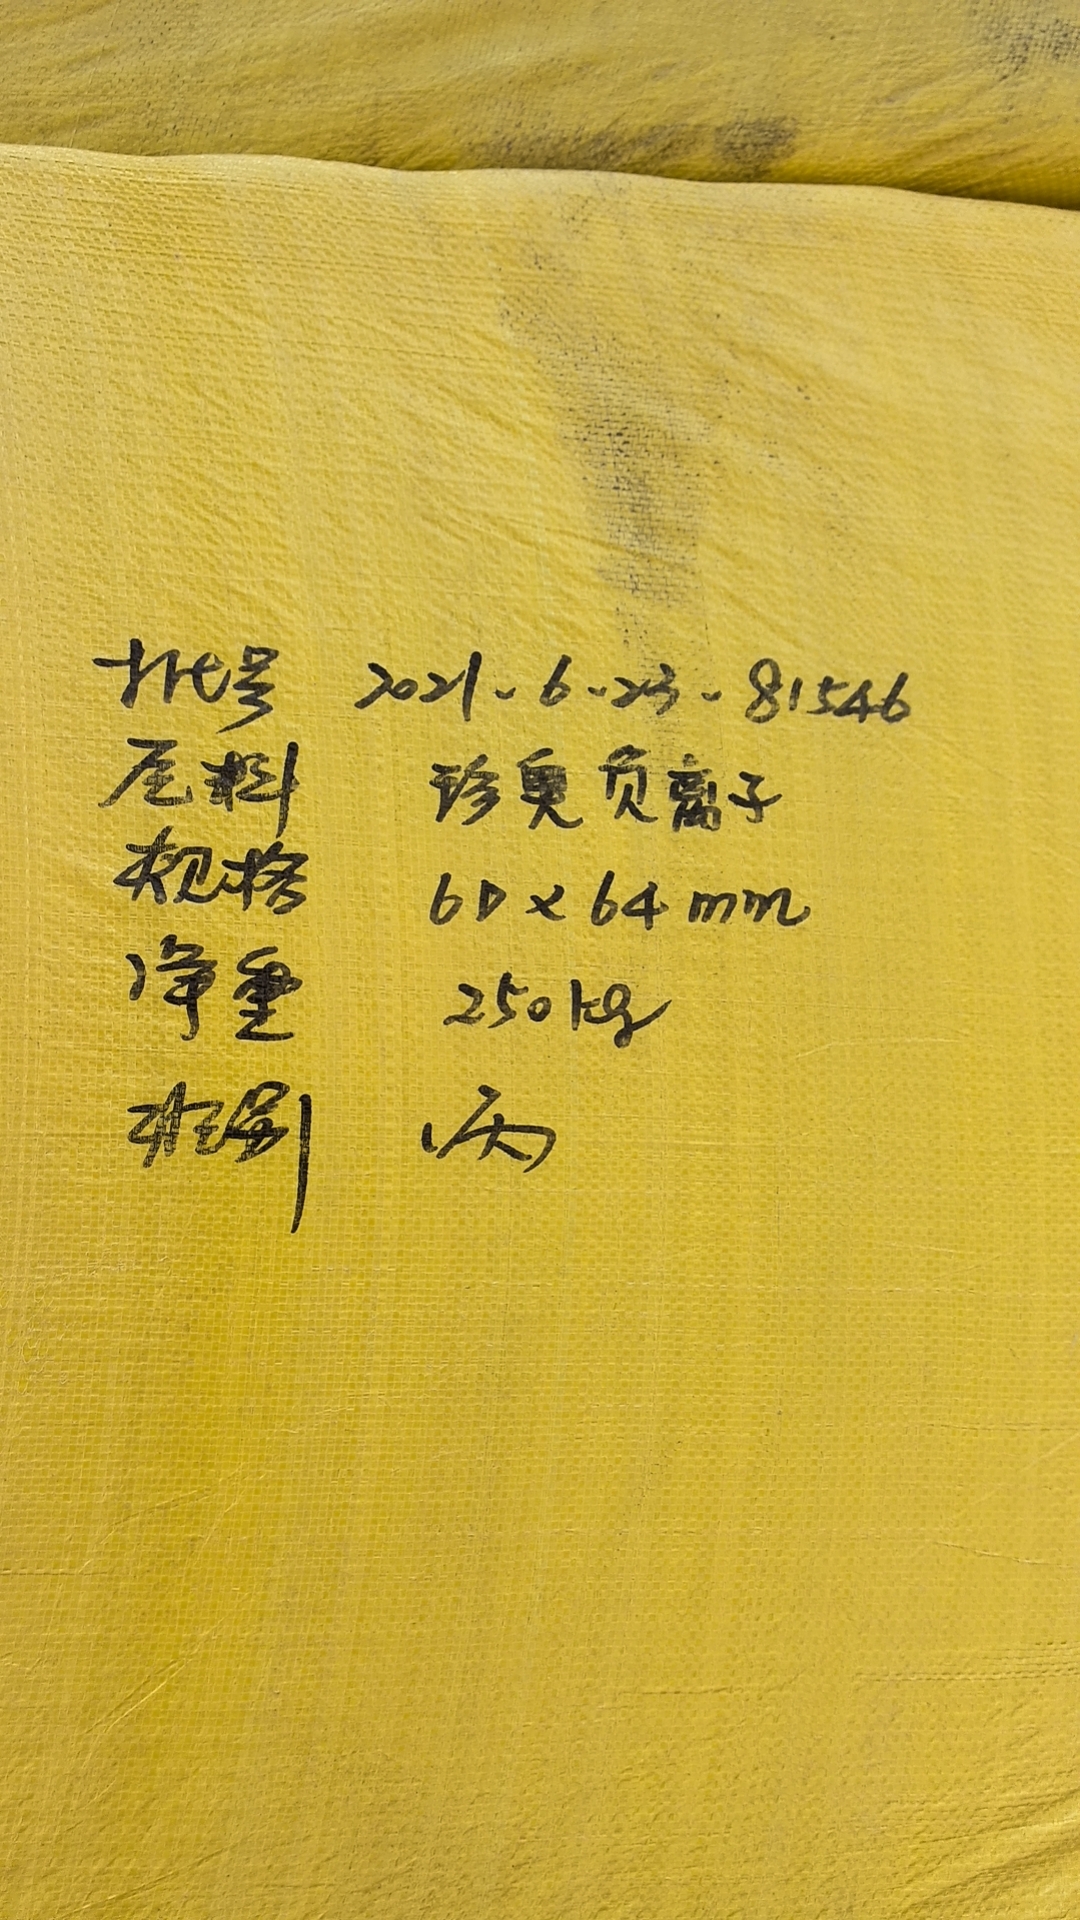 批号 2021-6-23-81546
尾料 珍臭负离子
规格 6D×64mm
净重 250kg
班别 丙